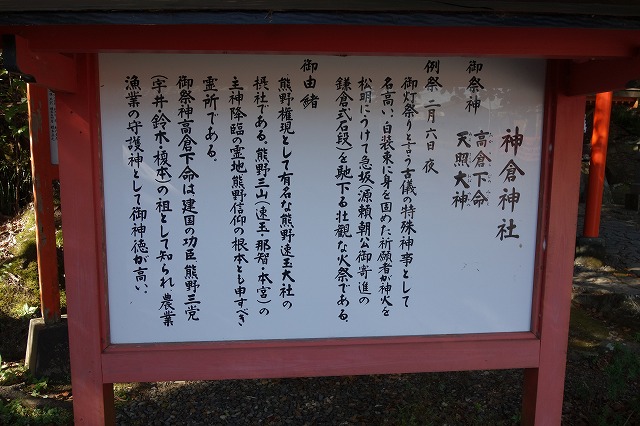 神倉神社
御祭神
高倉下命
天照大神
例祭 二月六日 夜
御灯祭りと言う古儀の特殊神事として
名高い、白装束に身を固めた祈願者が神火を
松明にうけて急坂(源頼朝公御寄進の
鎌倉式石段)を馳下る壮観な火祭である。
御由緒
熊野権現として有名な熊野速玉大社の
摂社である。熊野三山(速玉・那智・本宮)の
主神降臨の霊地熊野信仰の根本とも申すべき
霊所である。
御祭神高倉下命は建国の功臣 熊野三党
(宇井・鈴木・榎本)の祖として知られ農業
漁業の守護神として御神徳が高い。